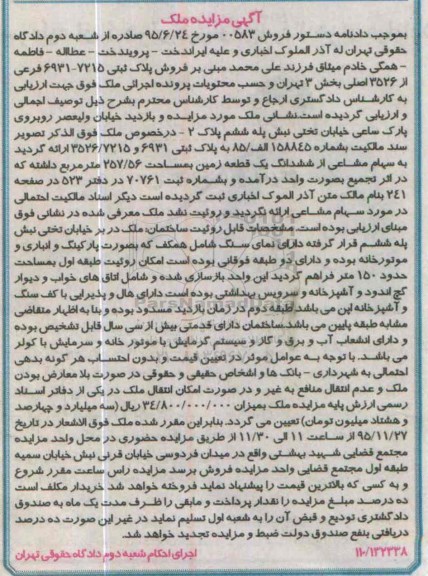 آگهی مزایده ملک
بموجب دادنامه دستور فروش ۰۰۵۸۳ مورخ ۹۵/۶/۲۴ صادره از شعبه دوم دادگاه
حقوقی تهران له آذر الملوک اخباری و علیه ایراندخت - پرویندخت - عطااله - فاطمه
- همگی خادم میثاق فرزند علی محمد مبنی بر فروش پلاک ثبتی ۷۲۱۵-۶۹۳۱ فرعی
از ۳۵۲۶ اصلی بخش ۳ تهران و حسب محتویات پرونده اجرائی ملک فوق جهت ارزیابی
به کارشناس دادگستری ارجاع و توسط کارشناس محترم بشرح ذیل توصیف اجمالی
و ارزیابی گردیده است.نشانی ملک مورد مزایده و بازدید خیابان ولیعصر روبروی
پارک ساعی خیابان تختی نبش پله ششم پلاک ۲ - درخصوص ملک فوق الذکر تصویر
سند مالکیت بشماره ۱۵۸۸۴۵ الف/۸۵ به پلاک ثبتی ۶۹۳۱ و ۳۵۲۶/۷۲۱۵ ارائه گردید
به سهام مشاعی از ششدانگ یک قطعه زمین بمساحت ۲۵۷/۵۶ مترمربع داشته که
در اثر تجمیع بصورت واحد درآمده و بشماره ثبت ۷۰۷۶۱ در دفتر ۵۲۳ در صفحه
۲۴۱ بنام مالک متن آذر الموک اخباری ثبت گردیده است دیگر اسناد مالکیت احتمالی
در مورد سهام مشاعی ارائه نگردید و روئیت نشد ملک معرفی شده در نشانی فوق
مبنای ارزیابی بوده است. مشخصات قابل روئیت ساختمان: ملک در بر خیابان تختی نبش
پله ششم قرار گرفته دارای نمای سنگ شامل همکف که بصورت پارکینگ و انباری و
موتورخانه بوده و دارای دو طبقه فوقانی بوده است امکان روئیت طبقه اول بمساحت
حدود ۱۵۰ متر فراهم گردید این واحد بازسازی شده و شامل اتاق های خواب و دیوار
گچ اندود و آشپزخانه و سرویس بهداشتی بوده است دارای هال و پذیرایی با کف سنگ
و آشپزخانه اپن می باشد طبقه دوم در زمان بازدید مسدود بوده و بنا به اظهار متقاضی
مشابه طبقه پایین می باشد ساختمان دارای قدمتی بیش از سی سال قابل تشخیص بوده
و دارای انشعاب آب و برق و گاز و سیستم گرمایش با موتور خانه و سرمایش با کولر
می باشد. با توجه به عوامل موثر در تعیین قیمت و بدون احتساب هر گونه بدهی
احتمالی به شهرداری - بانک ها و اشخاص حقیقی و حقوقی در صورت بلا معارض بودن
ملک و عدم انتقال منافع به غیر و در صورت امکان انتقال ملک در یکی از دفاتر اسناد
رسمی ارزش پایه مزایده ملک بمیزان ۳۴/۸۰۰/۰۰۰/۰۰۰ ریال (سه میلیارد و چهارصد
و هشتاد میلیون تومان) تعیین می گردد. بنابراین مقرر شده ملک فوق الاشعار در تاریخ
۹۵/۱۱/۲۷ از ساعت ۱۱ الی ۱۱/۳۰ از طریق مزایده حضوری در محل واحد مزایده
مجتمع قضایی شهید بهشتی واقع در میدان فردوسی خیابان قرنی نبش خیابان سمیه
طبقه اول مجتمع قضایی واحد مزایده فروش برسد مزایده راس ساعت مقرر شروع
و به کسی که بالاترین قیمت را پیشنهاد نماید فروخته خواهد شد خریدار مکلف است
ده درصد مبلغ مزایده را نقدار پرداخت و مابقی را ظرف مدت یک ماه به صندوق
دادگستری تودیع و قبض آن را به شعبه اول تسلیم نماید در غیر این صورت ده درصد
دریافتی بنفع صندوق دولت ضبط و مزایده تجدید خواهد شد.
۱۱۰/۱۳۲۳۳۸ اجرای احکام شعبه دوم دادگاه حقوقی تهران